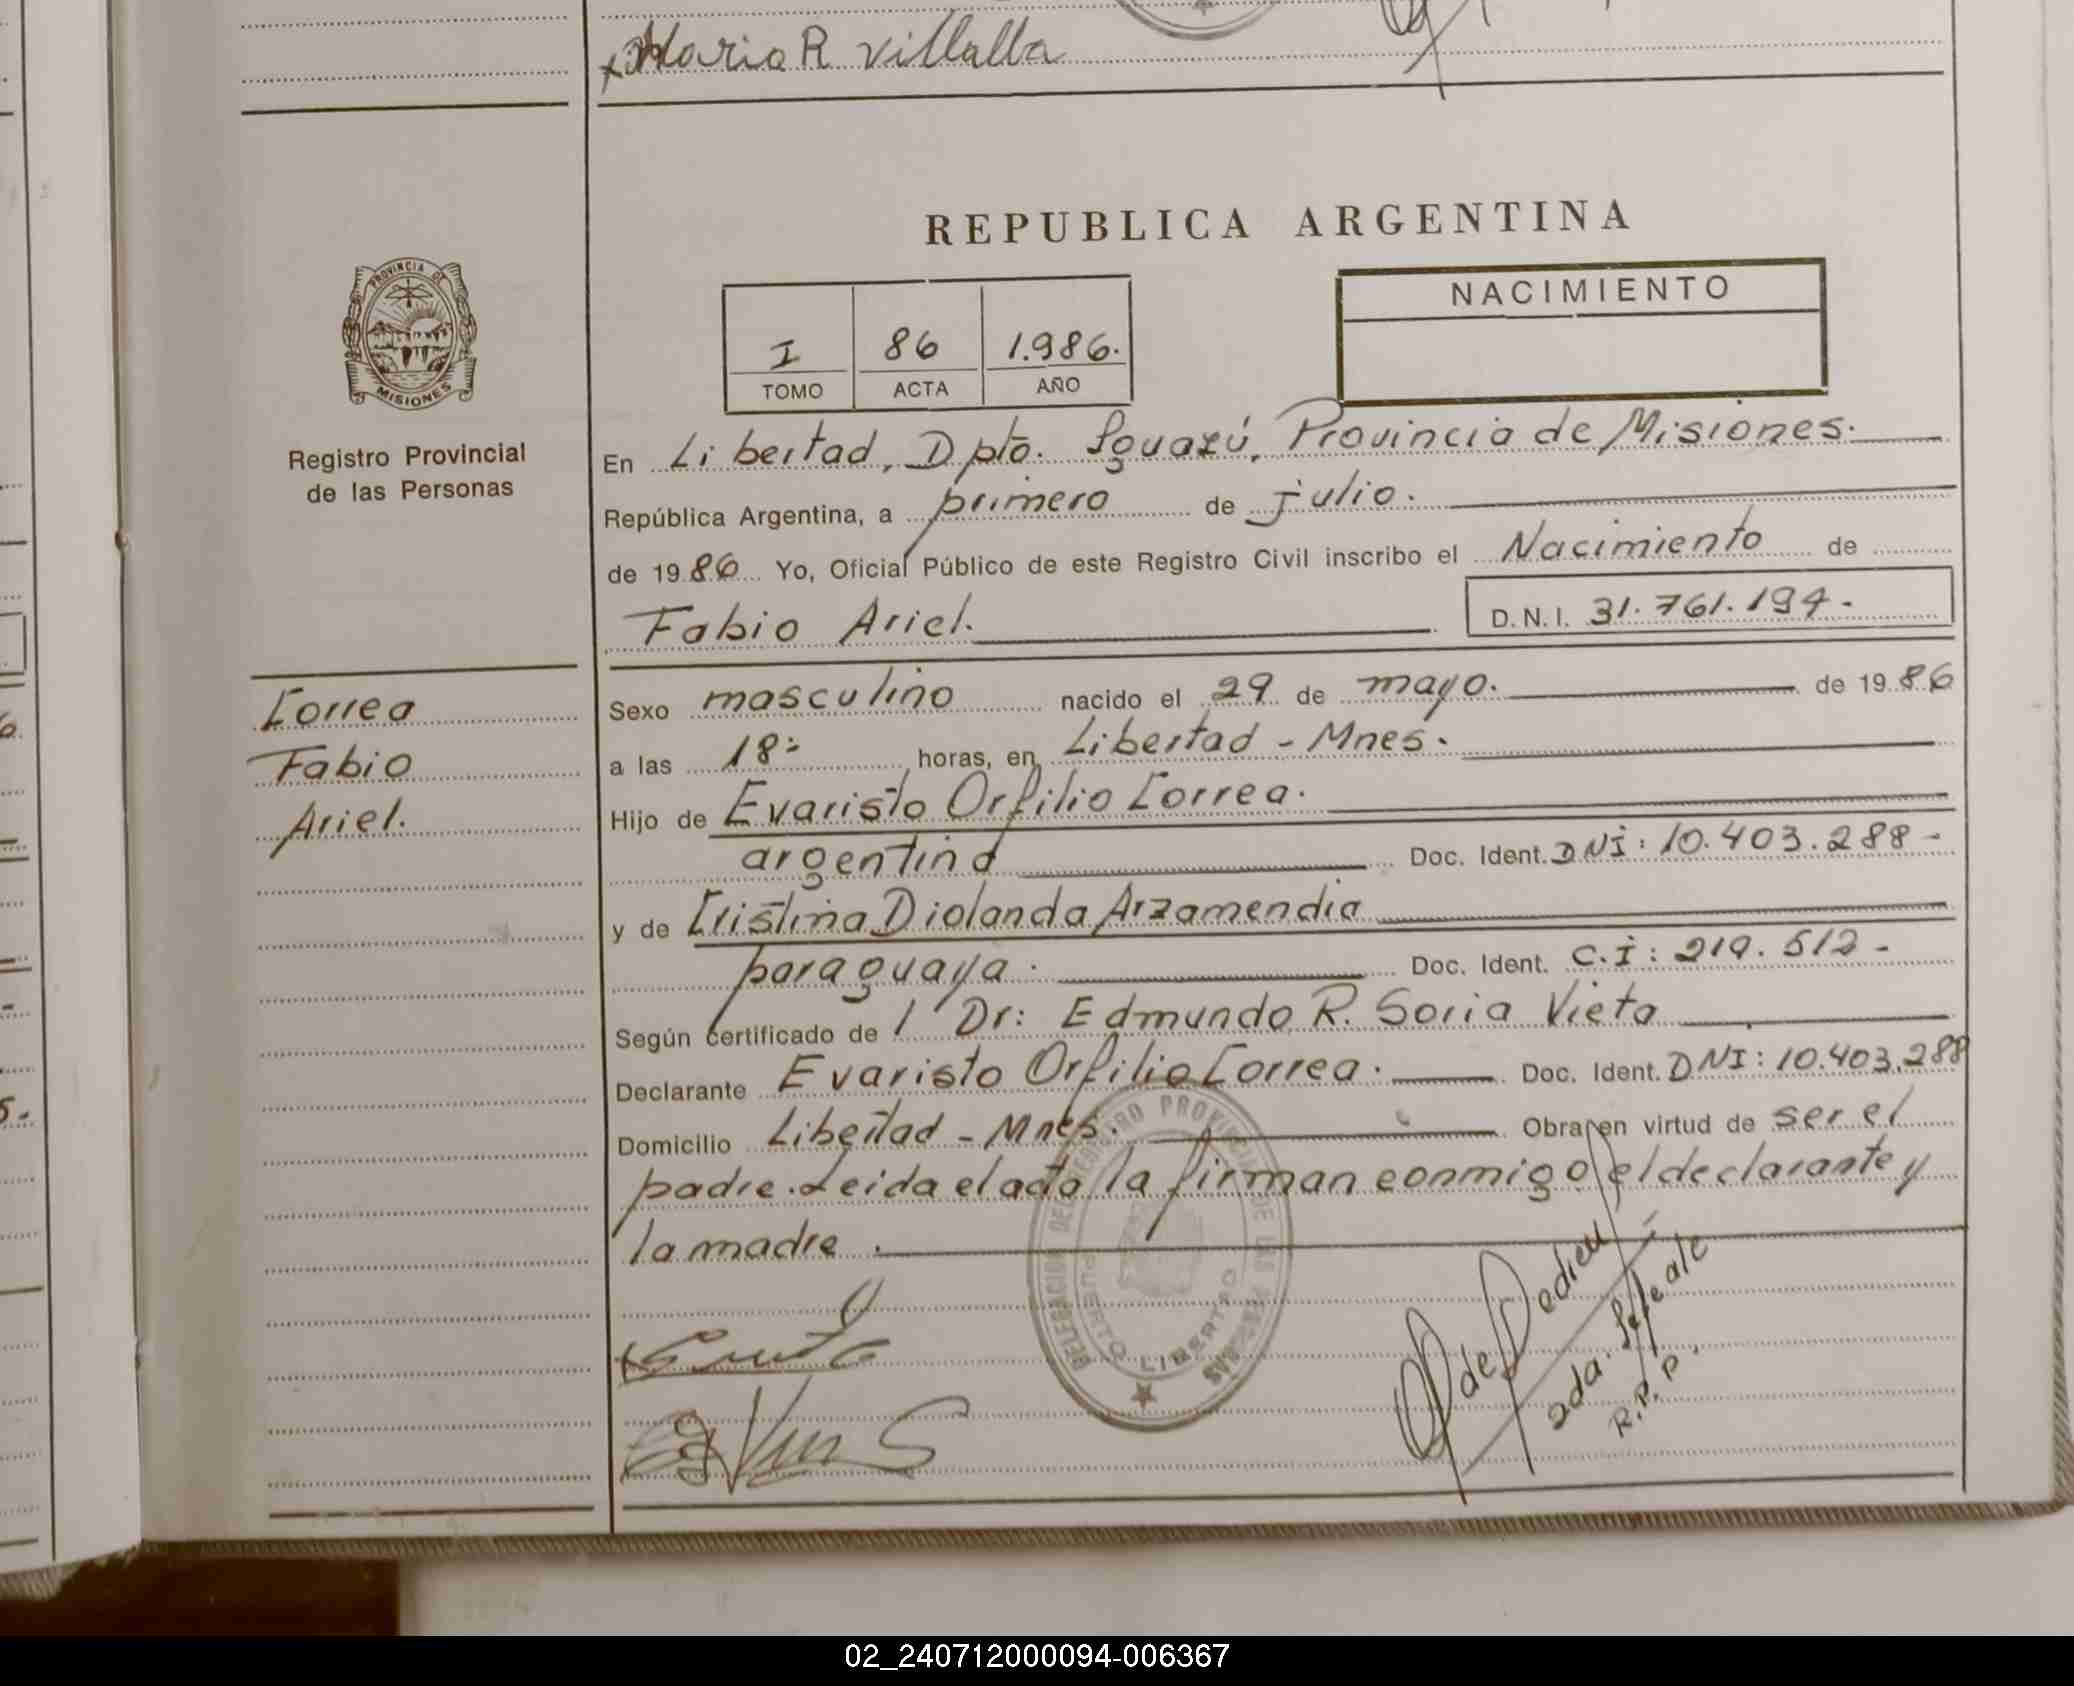 Maria R Villalba
REPUBLICA ARGENTINA
PROVINCIA DE
MISIONES
Registro Provincial
de las Personas
I 86 1.986.
TOMO ACTA AÑO
NACIMIENTO
En Libertad, Dpto. Iguazú, Provincia de Misiones.
República Argentina, a primero de julio.
de 1986 Yo, Oficial Público de este Registro Civil inscribo el Nacimiento de
Fabio Ariel. D.N.I. 31.761.194.-
Correa
Fabio
Ariel.
Sexo masculino nacido el 29 de mayo. de 1986
a las 18:- horas, en Libertad - Mnes.
Hijo de Evaristo Orfilio Correa.
argentina Doc. Ident. DNI: 10.403.288-
y de Cristina Diolanda Arzamendia
paraguaya. Doc. Ident. C.I: 219.512-
Según certificado de l Dr: Edmundo R. Soria Vieta
Declarante Evaristo Orfilio Correa. Doc. Ident. DNI: 10.403.288
Domicilio Libertad - Mnes. Obra en virtud de ser el
padre. Leida el acta la firman conmigo el declarante y
la madre.
DELEGACION DEL REGISTRO PROVINCIAL DE LAS PERSONAS
PUERTO LIBERTAD
de Dedieu
R.P.P.
02_240712000094-006367